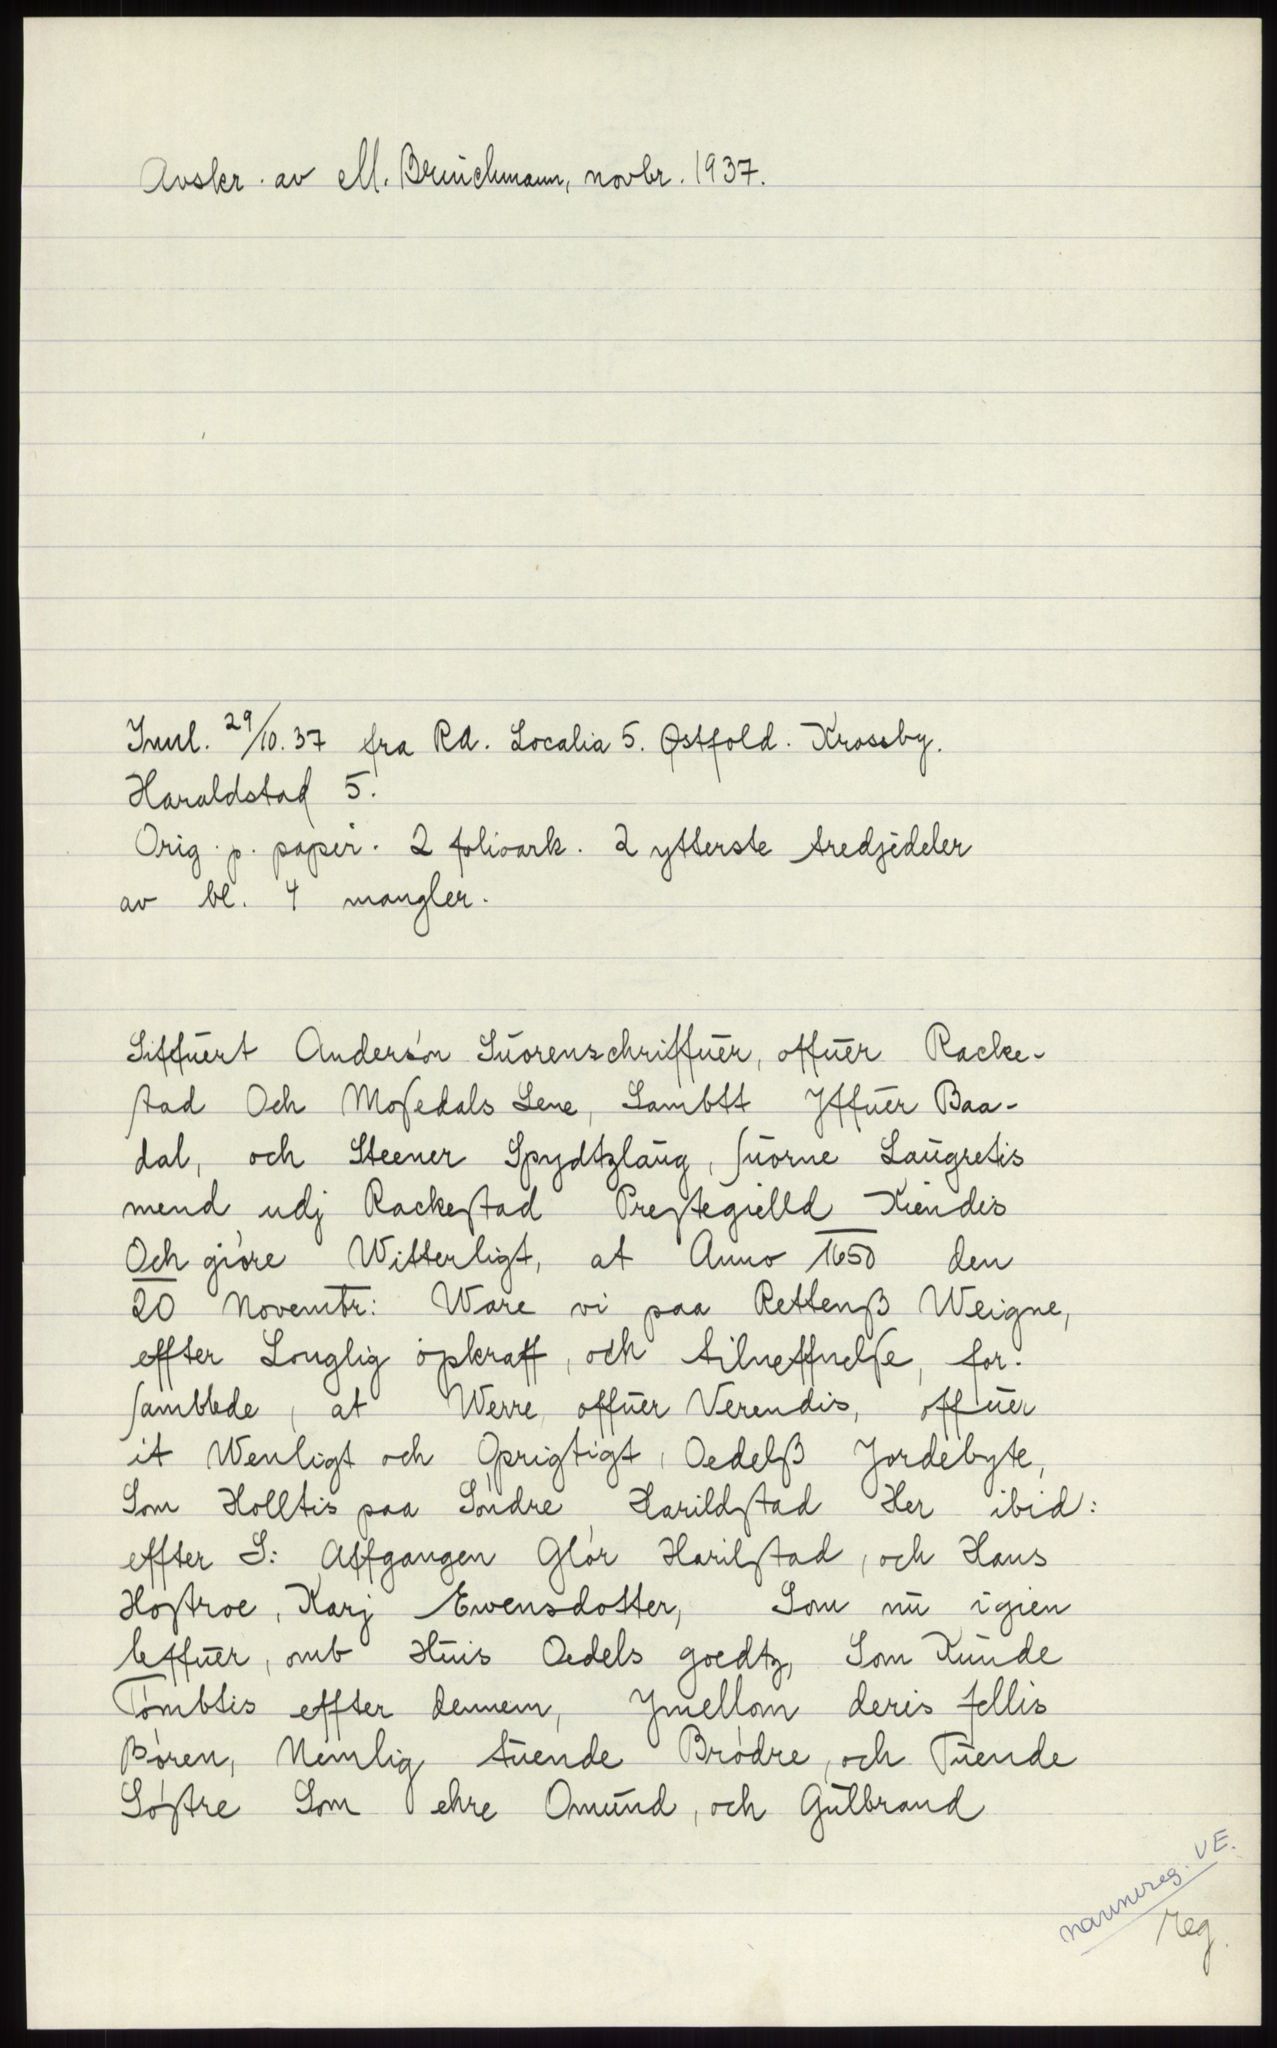 Avskr. av M. Brinchmann, novbr. 1937.
Innl. 29/10.37 fra Rd. Localia 5. Østfold. Krossby.
Haraldstad 5.
Orig. p. papir. 2 folioark. 2 ytterste tredjedeler
av bl. 4 mangler.
Siffuert Andersøn Suorenschriffuer, offuer Racke-
stad Och Mosedals Lene, Sambtt Yffuer Baa-
dal, och Steener Spydtzlaug, suorne Laugretis
mend udj Rackestad Prestegielld Kiendis
Och giøre Witterligt, at Anno 1650 den
20 Novembr: Ware vi paa Rettenß Weigne,
effter Louglig opkraff, och tilneffnelse, for-
samblede, at Werre offuer Verendis, offuer
it Wenligt och Oprigtigt, Oedelß Jordebyte,
Som Holltis paa Søndre Harildstad Her ibid:
effter S: Affgangen Glør Harilstad, och Hans
Hostroe, Karj Ewensdotter, Som nu igien
leffuer, omb Huis Oedels goedtz, Som Kunde
Tømbtis effter dennem, Ymellom deris fellis
Børen, Nemlig tuende Brødre, och Tuende
Søstre Som ehre Omund, och Gulbrand
navnereg. VE.
reg.